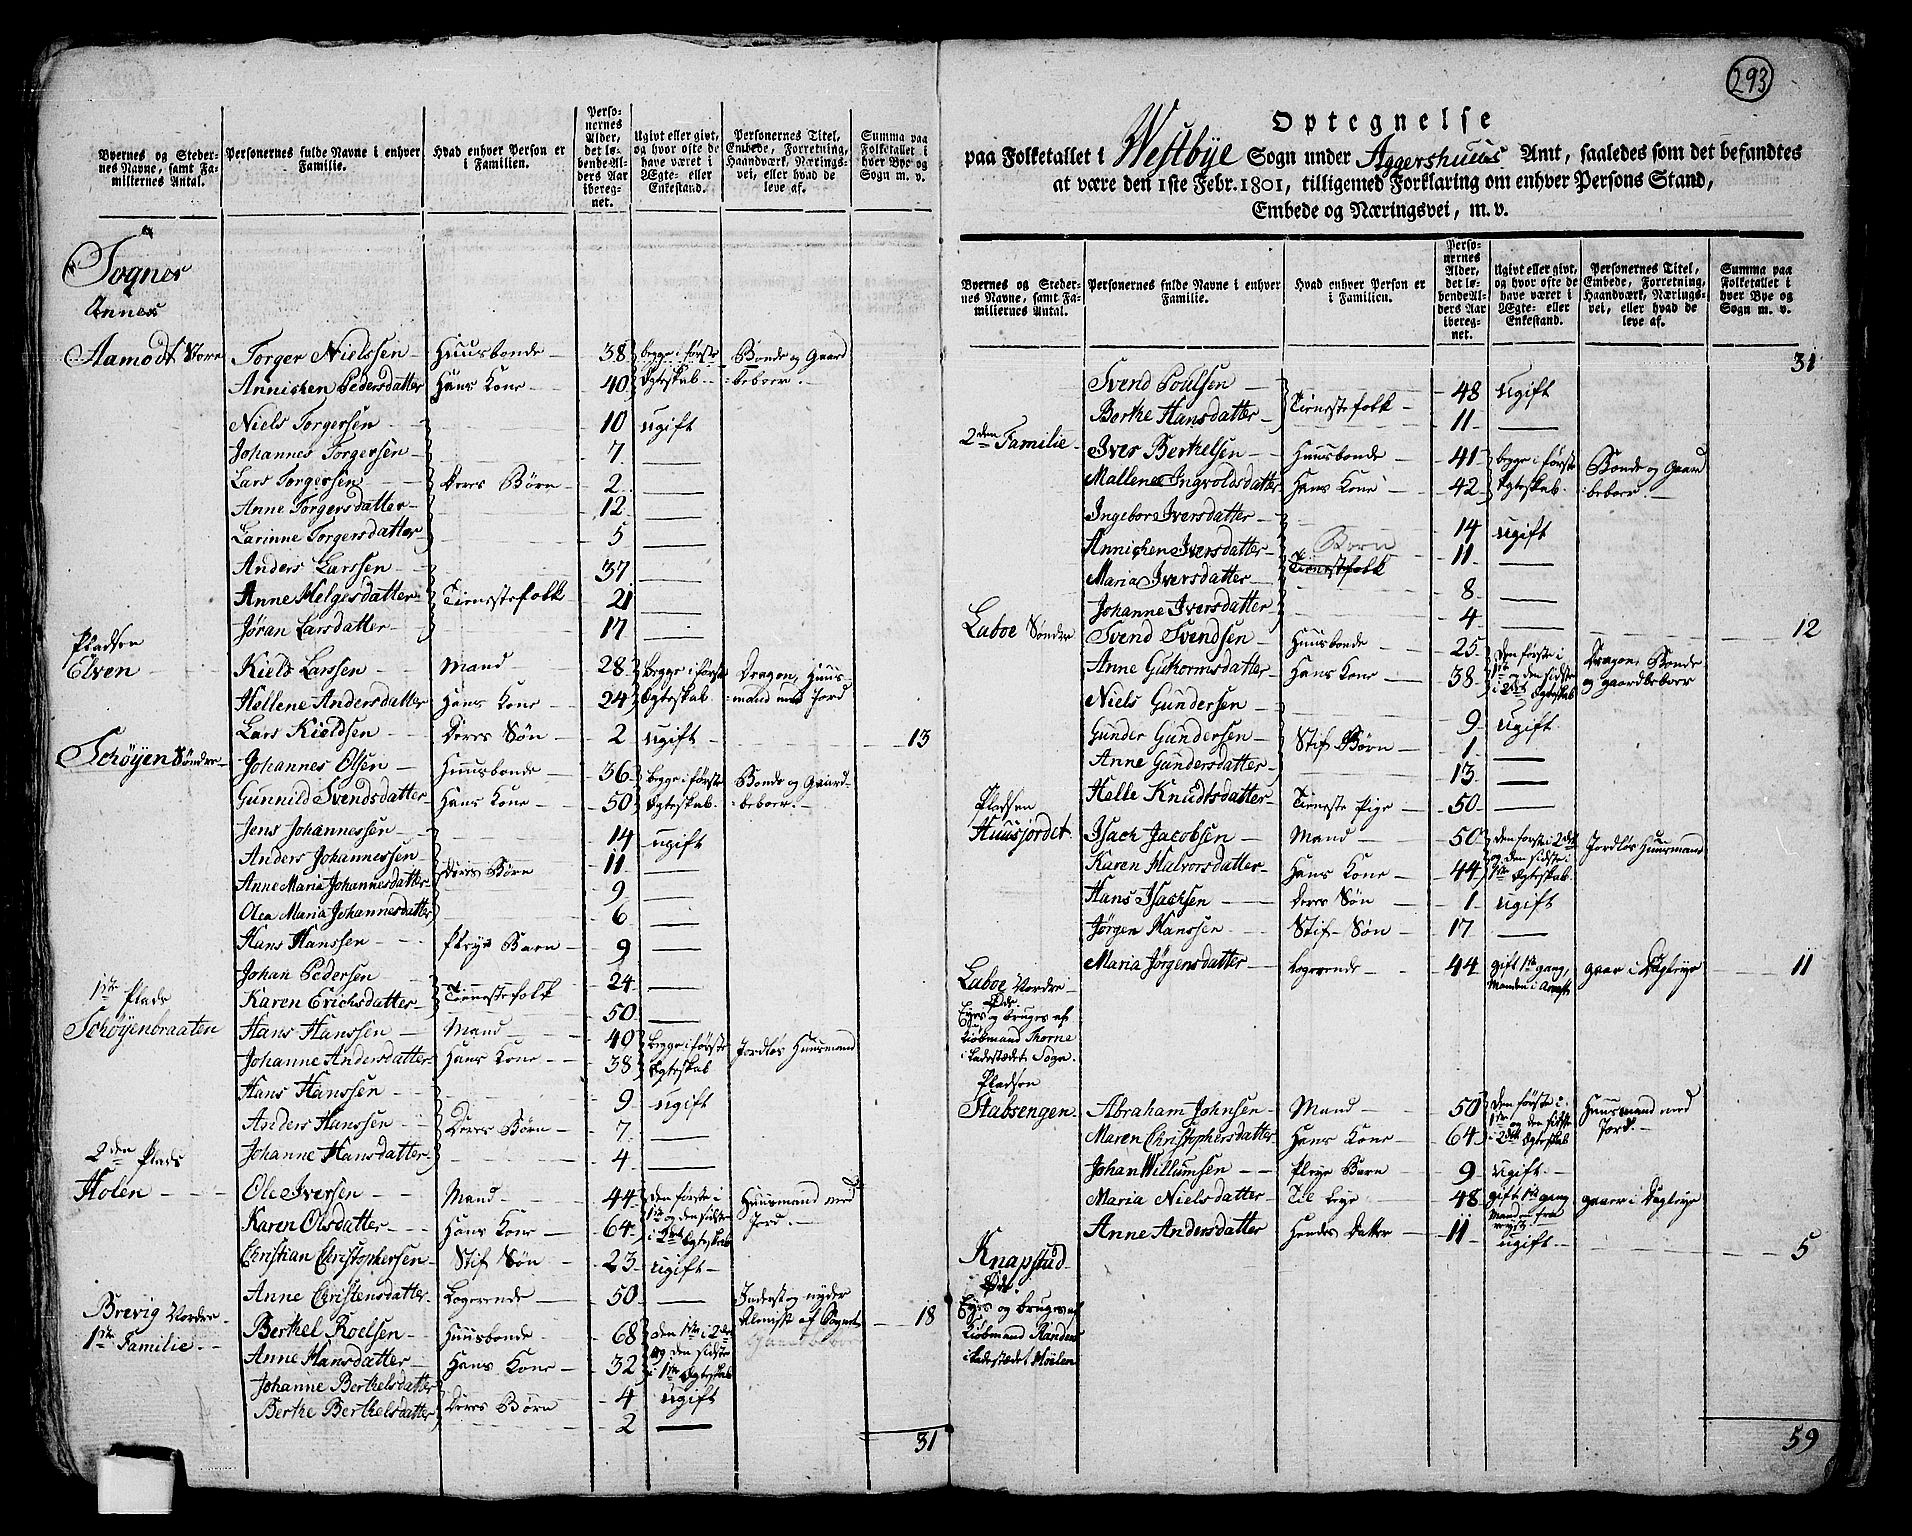 Byernes og Steder-
nes Navne, samt Fa-
miliernes Antal.
Personernes fulde Navne i enhver
Familie.
Hvad enhver Person er
i Familien.
Perso-
nernes
Alder,
det lø-
bende Al-
ders Aar
ibereg-
net.
Ugivt eller givt,
og hvor ofte de
have været i
Ægte- eller
Enkestand.
Personernes Titel,
Embede, Forretning,
Haandværk, Nærings-
vei, eller hvad de
leve af.
Summa paa
Folketallet i
hver Bye og
Sogn m. v.
Sogner
Annex
Aamodt Store Torger Nielssen Huusbonde 38 begge i første Bonde og Gaard
Annichen Pedersdatter Hans Kone 40 Ægteskab beboer.
Niels Torgersen 10 ugift
Johannes Torgersen 7 —
Lars Torgersen Deres Børn 2 —
Anne Torgersdatter 12 —
Larinne Torgersdatter 5 —
Anders Larssen 37 —
Anne Helgesdatter Tienestefolk 21 —
Jøran Larsdatter 17 —
Pladsen
Elven Kield Larssen Mand 28 begge i første Dragon, Huus-
Hellene Andersdatter Hans Kone 24 Ægteskab mand med Jord
Lars Kieldsen Deres Søn 2 ugift 13
Schøyen Søndre Johannes Olsen Huusbonde 36 begge i første Bonde og Gaard-
Gunnild Svendsdatter Hans Kone 50 Ægteskab beboer.
Jens Johannessen 14 ugift
Anders Johannessen 11 —
Anne Maria Johannesdatter Deres Børn 9 —
Olea Maria Johannesdatter 6 —
Hans Hanssen Pleye Barn 9 —
Johan Pedersen 24 —
Karen Erichsdatter Tienestefolk 50 —
1ste Plads
Schøyenbraaten Hans Hanssen Mand 40 begge i første Jordløs Huusmand
Johanne Andersdatter Hans Kone 38 Ægteskab
Hans Hanssen 9 ugift
Anders Hanssen Deres Børn 7 —
Johanne Hansdatter 4 —
2den Plads
Holen Ole Iversen Mand 44 den første i Huusmand med
Karen Olsdatter Hans Kone 64 1ste og den sidste Jord.
i 2det Ægteskab
Christian Christophersen Stif Søn 23 ugift
Anne Christensdatter Logerende 50 — Inderst og nyder
Almisse af Sognet 18
Brevig Nordre
1ste Familie Berthel Roelsen Huusbonde 68 den 1ste i 2det
Anne Hansdatter Hans Kone 32 og den sidste
i 1ste Ægteskab
Johanne Berthelsdatter 4 ugift
Berthe Berthelsdatter Deres Børn 2 —
31
293
Optegnelse
paa Folketallet i Westbye Sogn under Aggershuus Amt, saaledes som det befandtes
at være den 1ste Febr. 1801, tilligemed Forklaring om enhver Persons Stand,
Embede og Næringsvei, m. v.
Byernes og Steder-
nes Navne, samt Fa-
miliernes Antal.
Personernes fulde Navne i enhver
Familie.
Hvad enhver Person er
i Familien.
Perso-
nernes
Alder,
det lø-
bende Al-
ders Aar
ibereg-
net.
Ugivt eller givt,
og hvor ofte de
have været i
Ægte- eller
Enkestand.
Personernes Titel,
Embede, Forretning,
Haandværk, Nærings-
vei, eller hvad de
leve af.
Summa paa
Folketallet i
hver Bye og
Sogn m. v.
31
Svend Poulsen 48 ugift
Berthe Hansdatter Tienestefolk 11 —
2den Familie Iver Berthelsen Huusbonde 41 begge i første Bonde og Gaard
Mallene Ingvoldsdatter Hans Kone 42 Ægteskab beboer.
Ingebor Iversdatter 14 ugift
Annichen Iversdatter Børn 11 —
Maria Iversdatter Tienestefolk 8 —
Johanne Iversdatter 4 — 12
Laboe Søndre Svend Svendsen Huusbonde 25 den første i Dragon, Bonde
Anne Guthormsdatter Hans Kone 38 1ste og den sidste og gaardbeboer
i 2det Ægteskab
Niels Gundersen 9 ugift
Gunder Gundersen Stif Børn 1 —
Anne Gundersdatter 13 —
Helle Knudtsdatter Tieneste Pige 50 —
Pladsen
Huusjordet Isach Jacobsen Mand 50 den første i 2det Jordløs Huusmand
Karen Halvorsdatter Hans Kone 44 og den sidste i
1ste Ægteskab
Hans Isachsen deres Søn 1 ugift
Jørgen Hanssen Stif Søn 17 —
Maria Jørgensdatter Logerende 44 gift 1ste gang, gaar i Dagleye 11
Manden i Arrest
Laboe Nordre
Øde.
Eyes og bruges af
Kiøbmand Thorne
i Ladestædets Sogn.
Pladsen
Stabsengen Abraham Johnsen Mand 50 den første i Huusmand med
Maren Christophersdatter Hans Kone 64 1ste og den sidste Jord.
i 2det Ægteskab
Johan Willumsen Pleye Barn 9 ugift
Maria Nielsdatter Til Leye 48 gift 1ste gang gaaer i Dagleye
Manden fra
reyst
Anne Andersdatter Hendes Datter 11 ugift 5
Knapstad
Øde.
Eyes og bruges af
Kiøbmand Randers
i Ladestædet Hølen
59